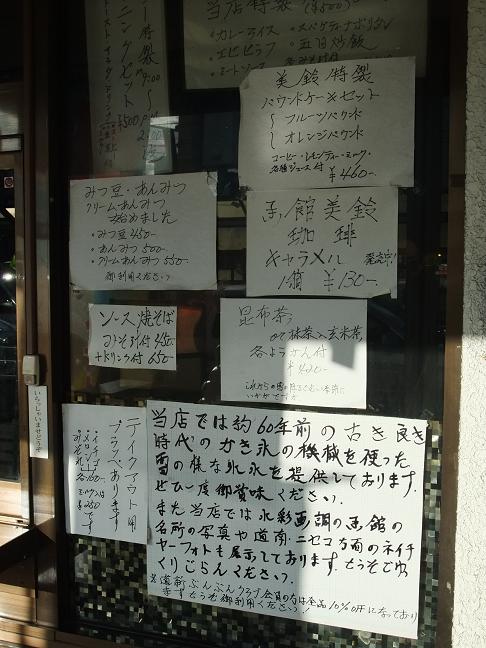 当店特製
・カレーライス ・スパゲティナポリタン
・エビピラフ ・五目炒飯
・ミートソース
特製
モーニングセット
9:00〜
¥500
美鈴特製
パウンドケーキセット
フルーツパウンド
オレンジパウンド
コーヒー・レモンティー・ミルク・
各種ジュース付
¥460-
みつ豆・あんみつ
クリームあんみつ
始めました
・みつ豆 450-
・あんみつ 500-
・クリームあんみつ 550-
御利用ください
函館美鈴
珈琲
キャラメル 発売中!
1箱 ¥130-
ソース焼そば
みそ汁付 450-
+ドリンク付 650-
昆布茶
抹茶入玄米茶
各ようかん付
¥420-
いかがですか
いらっしゃいませどうぞ
テイクアウト用
フラッペあります
・イチゴ
・メロン
・みぞれ
各
ミルクは
¥250です
当店では約60年前の古き良き
時代のかき氷の機械を使った
雪の様な氷水を提供しております。
ぜひ一度御賞味ください。
また当店では水彩画調の函館の
名所の写真や道南・ニセコ方面のネイチ
ャーフォトも展示しております。どうぞごゆっ
くりごらんください。
※道新ぶんぶんクラブ会員の方は全品10%OFFになっており
ます。どうぞ御利用ください!